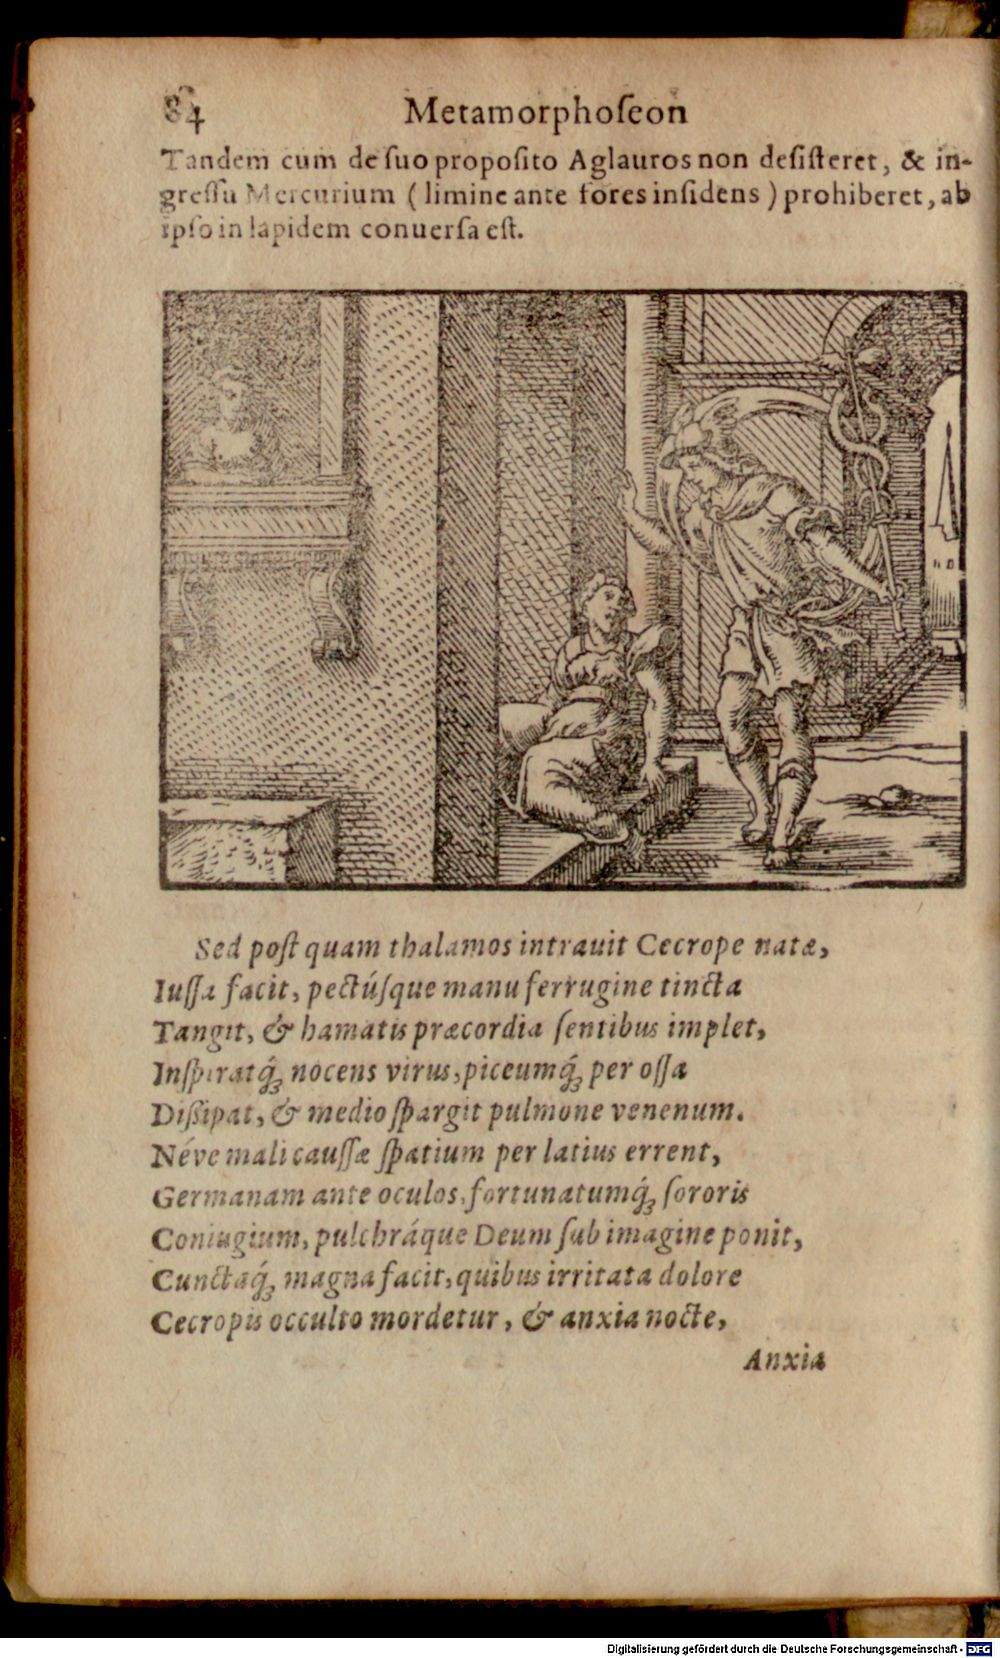 84 Metamorphoſeon
Tandem cum de ſuo propoſito Aglauros non deſiſteret, & in-
greſſu Mercurium ( limine ante fores inſidens ) prohiberet, ab
ipſo in lapidem conuerſa eſt.
Sed poſt quam thalamos intrauit Cecrope natæ,
Iuſſa facit, pectúſque manu ferrugine tincta
Tangit, & hamatis præcordia ſentibus implet,
Inſpiratq́; nocens virus, piceumq́; per oſſa
Diſsipat, & medio ſpargit pulmone venenum.
Néve mali cauſſæ ſpatium per latius errent,
Germanam ante oculos, fortunatumq́; ſororis
Coniugium, pulchráque Deum ſub imagine ponit,
Cunctaq́; magna facit, quibus irritata dolore
Cecropis occulto mordetur, & anxia nocte,
Anxia
Digitalisierung gefördert durch die Deutsche Forschungsgemeinschaft - DFG